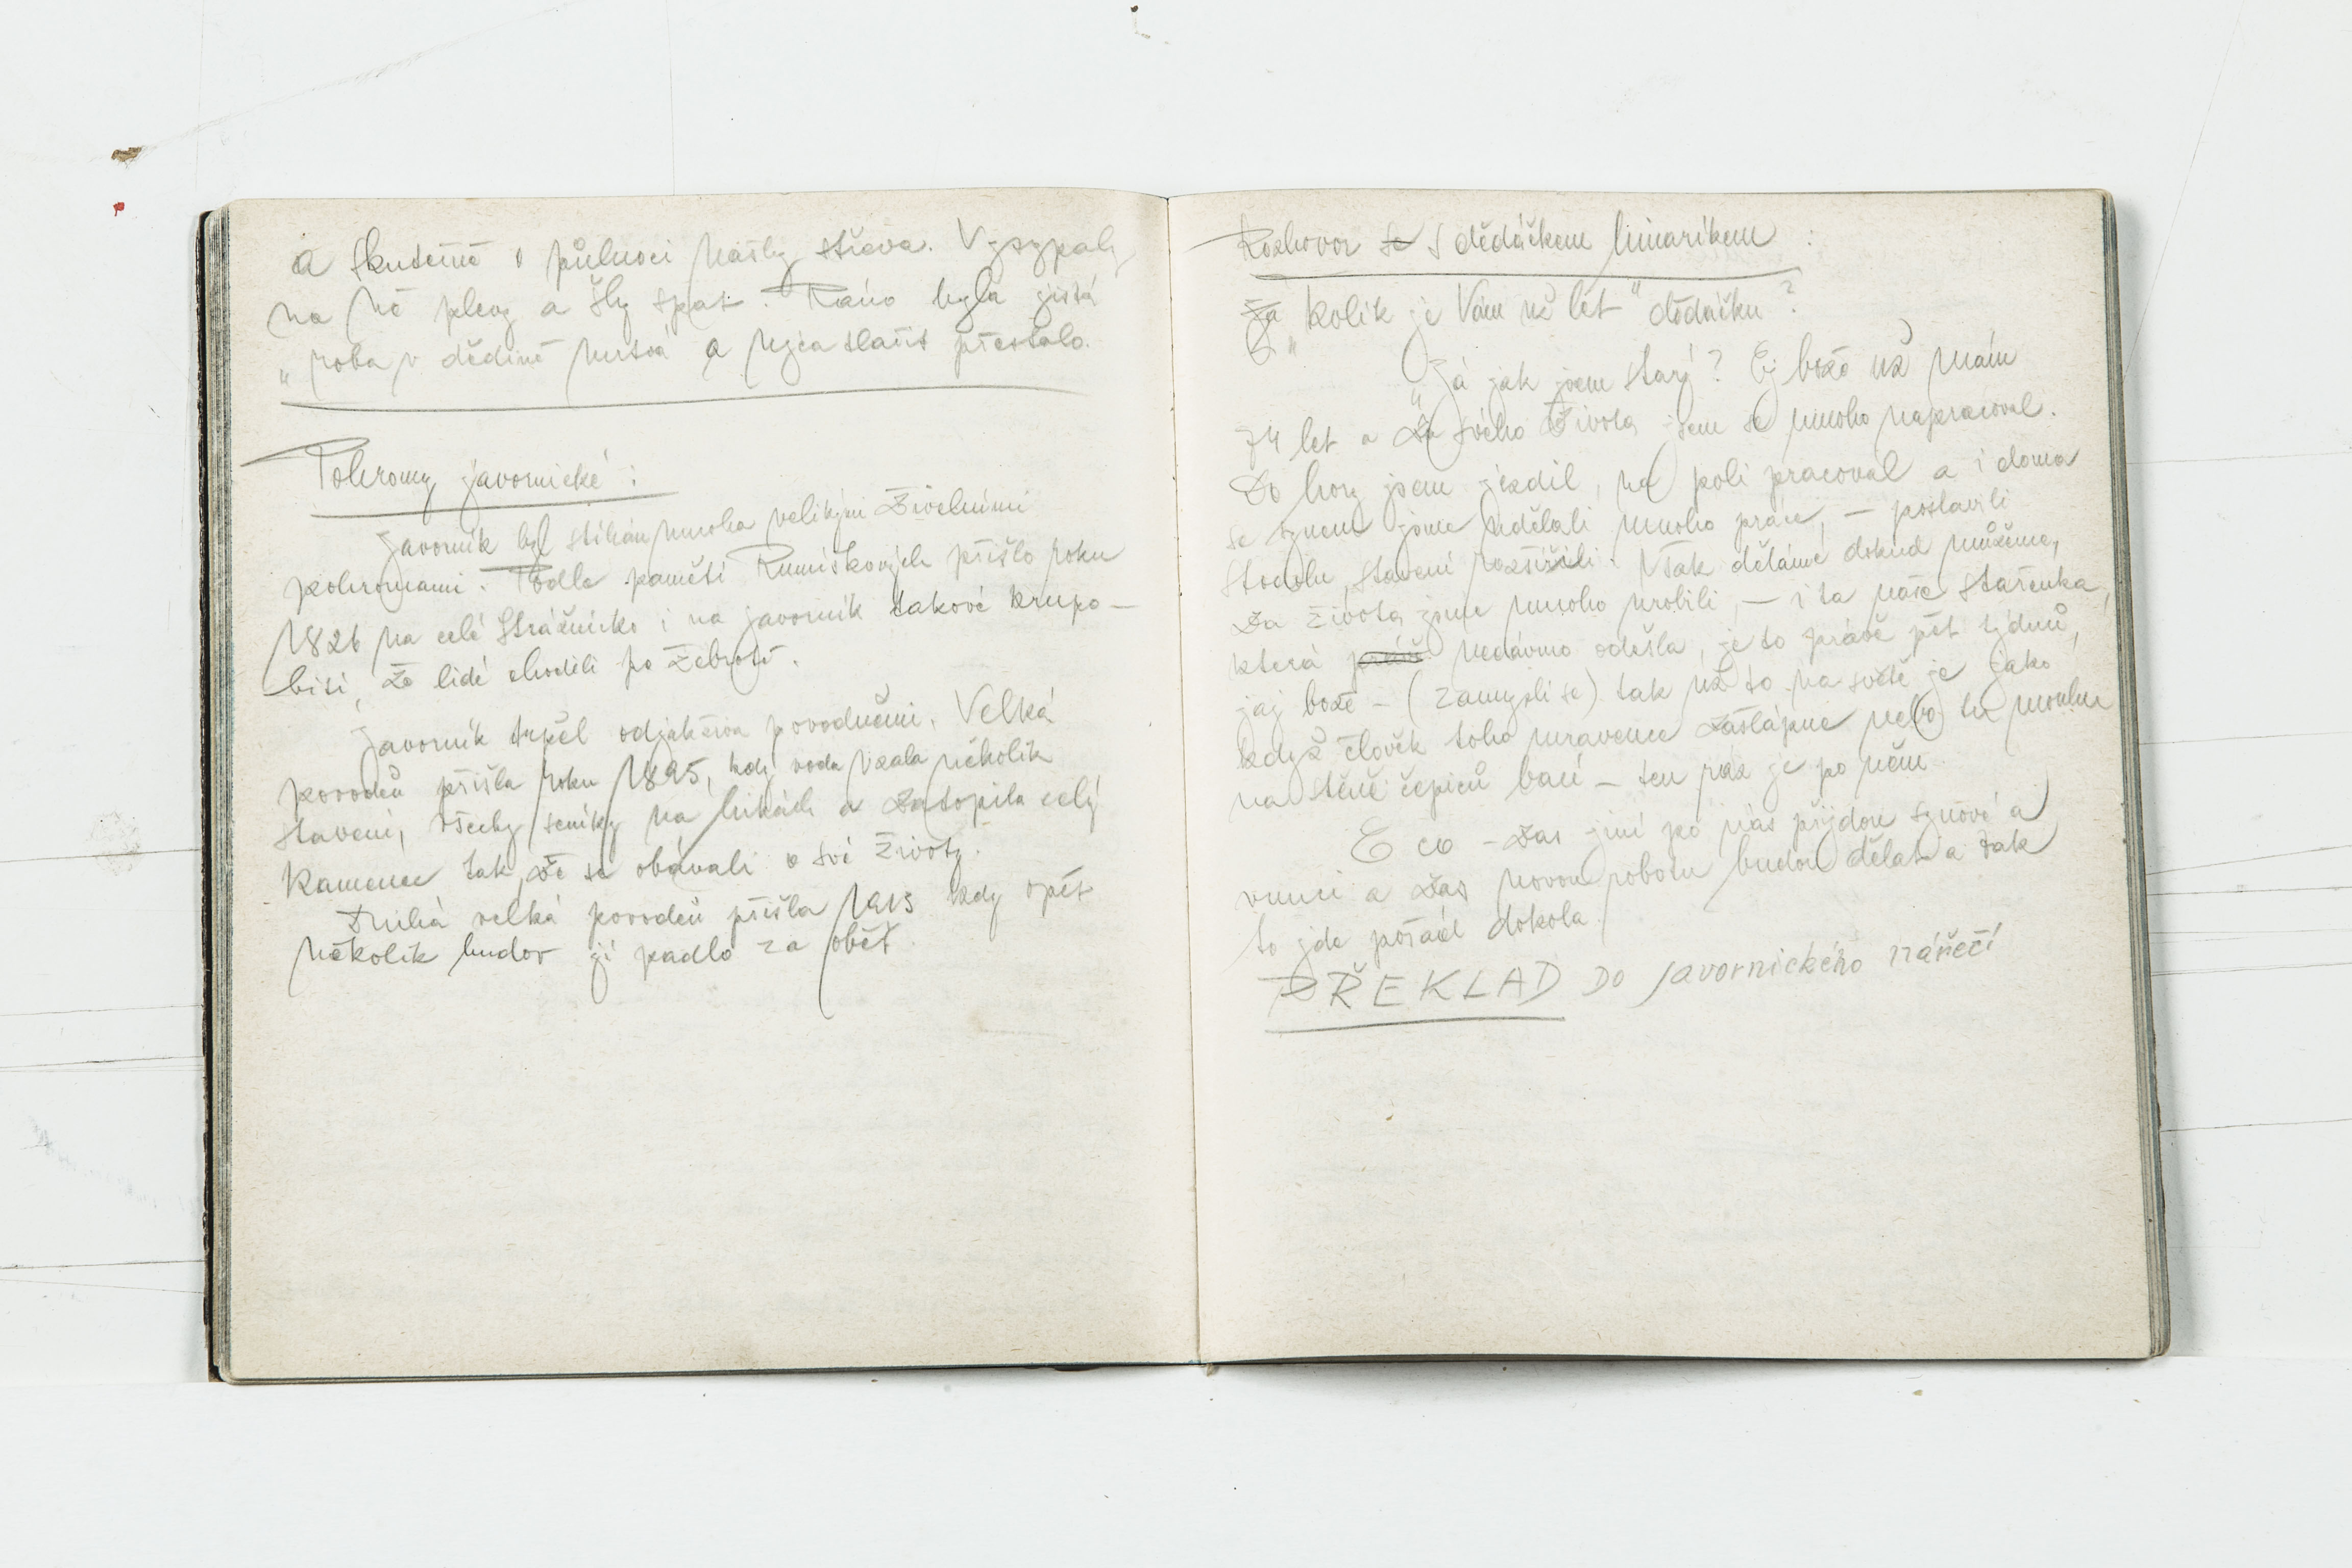 a skutečně o půlnoci našly střeva. Vysypaly
na ně plevy a šly spat. Ráno byla jistá
„roba v dědině mrtvá a tlačit přestalo.
Pohromy javornické:
Javorník byl stíhán mnoha velikými živelními
pohromami. Podle paměti Rumíškových přišlo roku
1826 na celé Strážnicko i na javorník takové krupo-
bití, že lidé chodili po žebrotě.
Javorník trpěl odjakživa povodněmi. Velká
povodeň přišla roku 1895, kdy voda vzala několik
stavení, všechy seníky na lukách a zatopila celý
Kamenec tak, že se obávali o své životy.
Druhá velká povodeň přišla 1913 kdy opět
několik budov jí padlo za oběť.
Rozhovor se s dědáčkem limaríkem:
Za kolik je Vám už let" dědáčku?
„Já jak jsem starý? Ej bože už mám
74 let a za svého života jsem se mnoho napracoval.
Do hory jsem jezdil, na poli pracoval a i doma
se synem jsme udělali mnoho práce, – postavili
stodolu, stavení rozšířili. Však děláme dokud můžeme,
Za života jsme mnoho urobili, – i ta naše stařenka,
která nedávno odešla, je to právě pět týdnů,
jaj bože – (zamyslí se) tak už to na světě je jako
když člověk toho mravence zašlápne nebo tu mouchu
na stěně čepicú bací – ten ráz je po něm.
E co – zas jiní po nás přijdou synové a
vnuci a zas novou robotu budou dělat a tak
to jde pořád dokola.
PŘEKLAD DO javornického nářečí